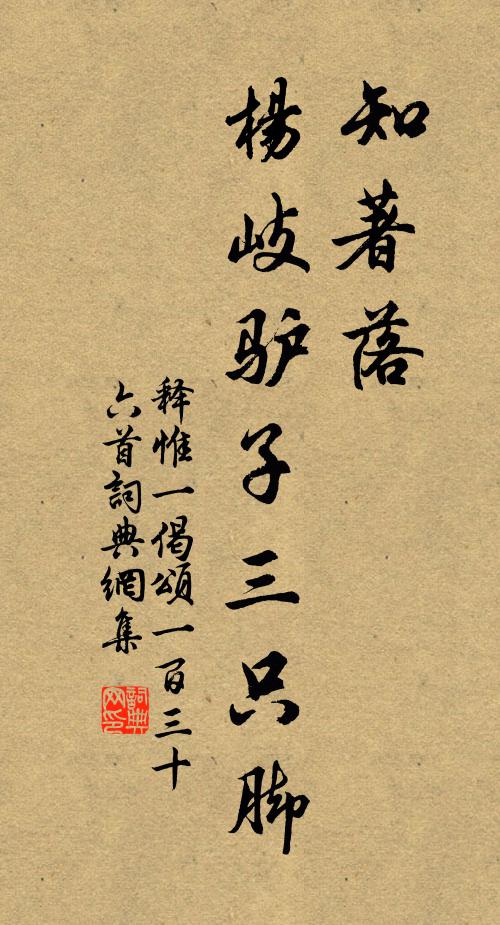 知著落
楊岐驴子三只脚
释惟一偈頌一百三十
六首詞典網集
詞典
网印